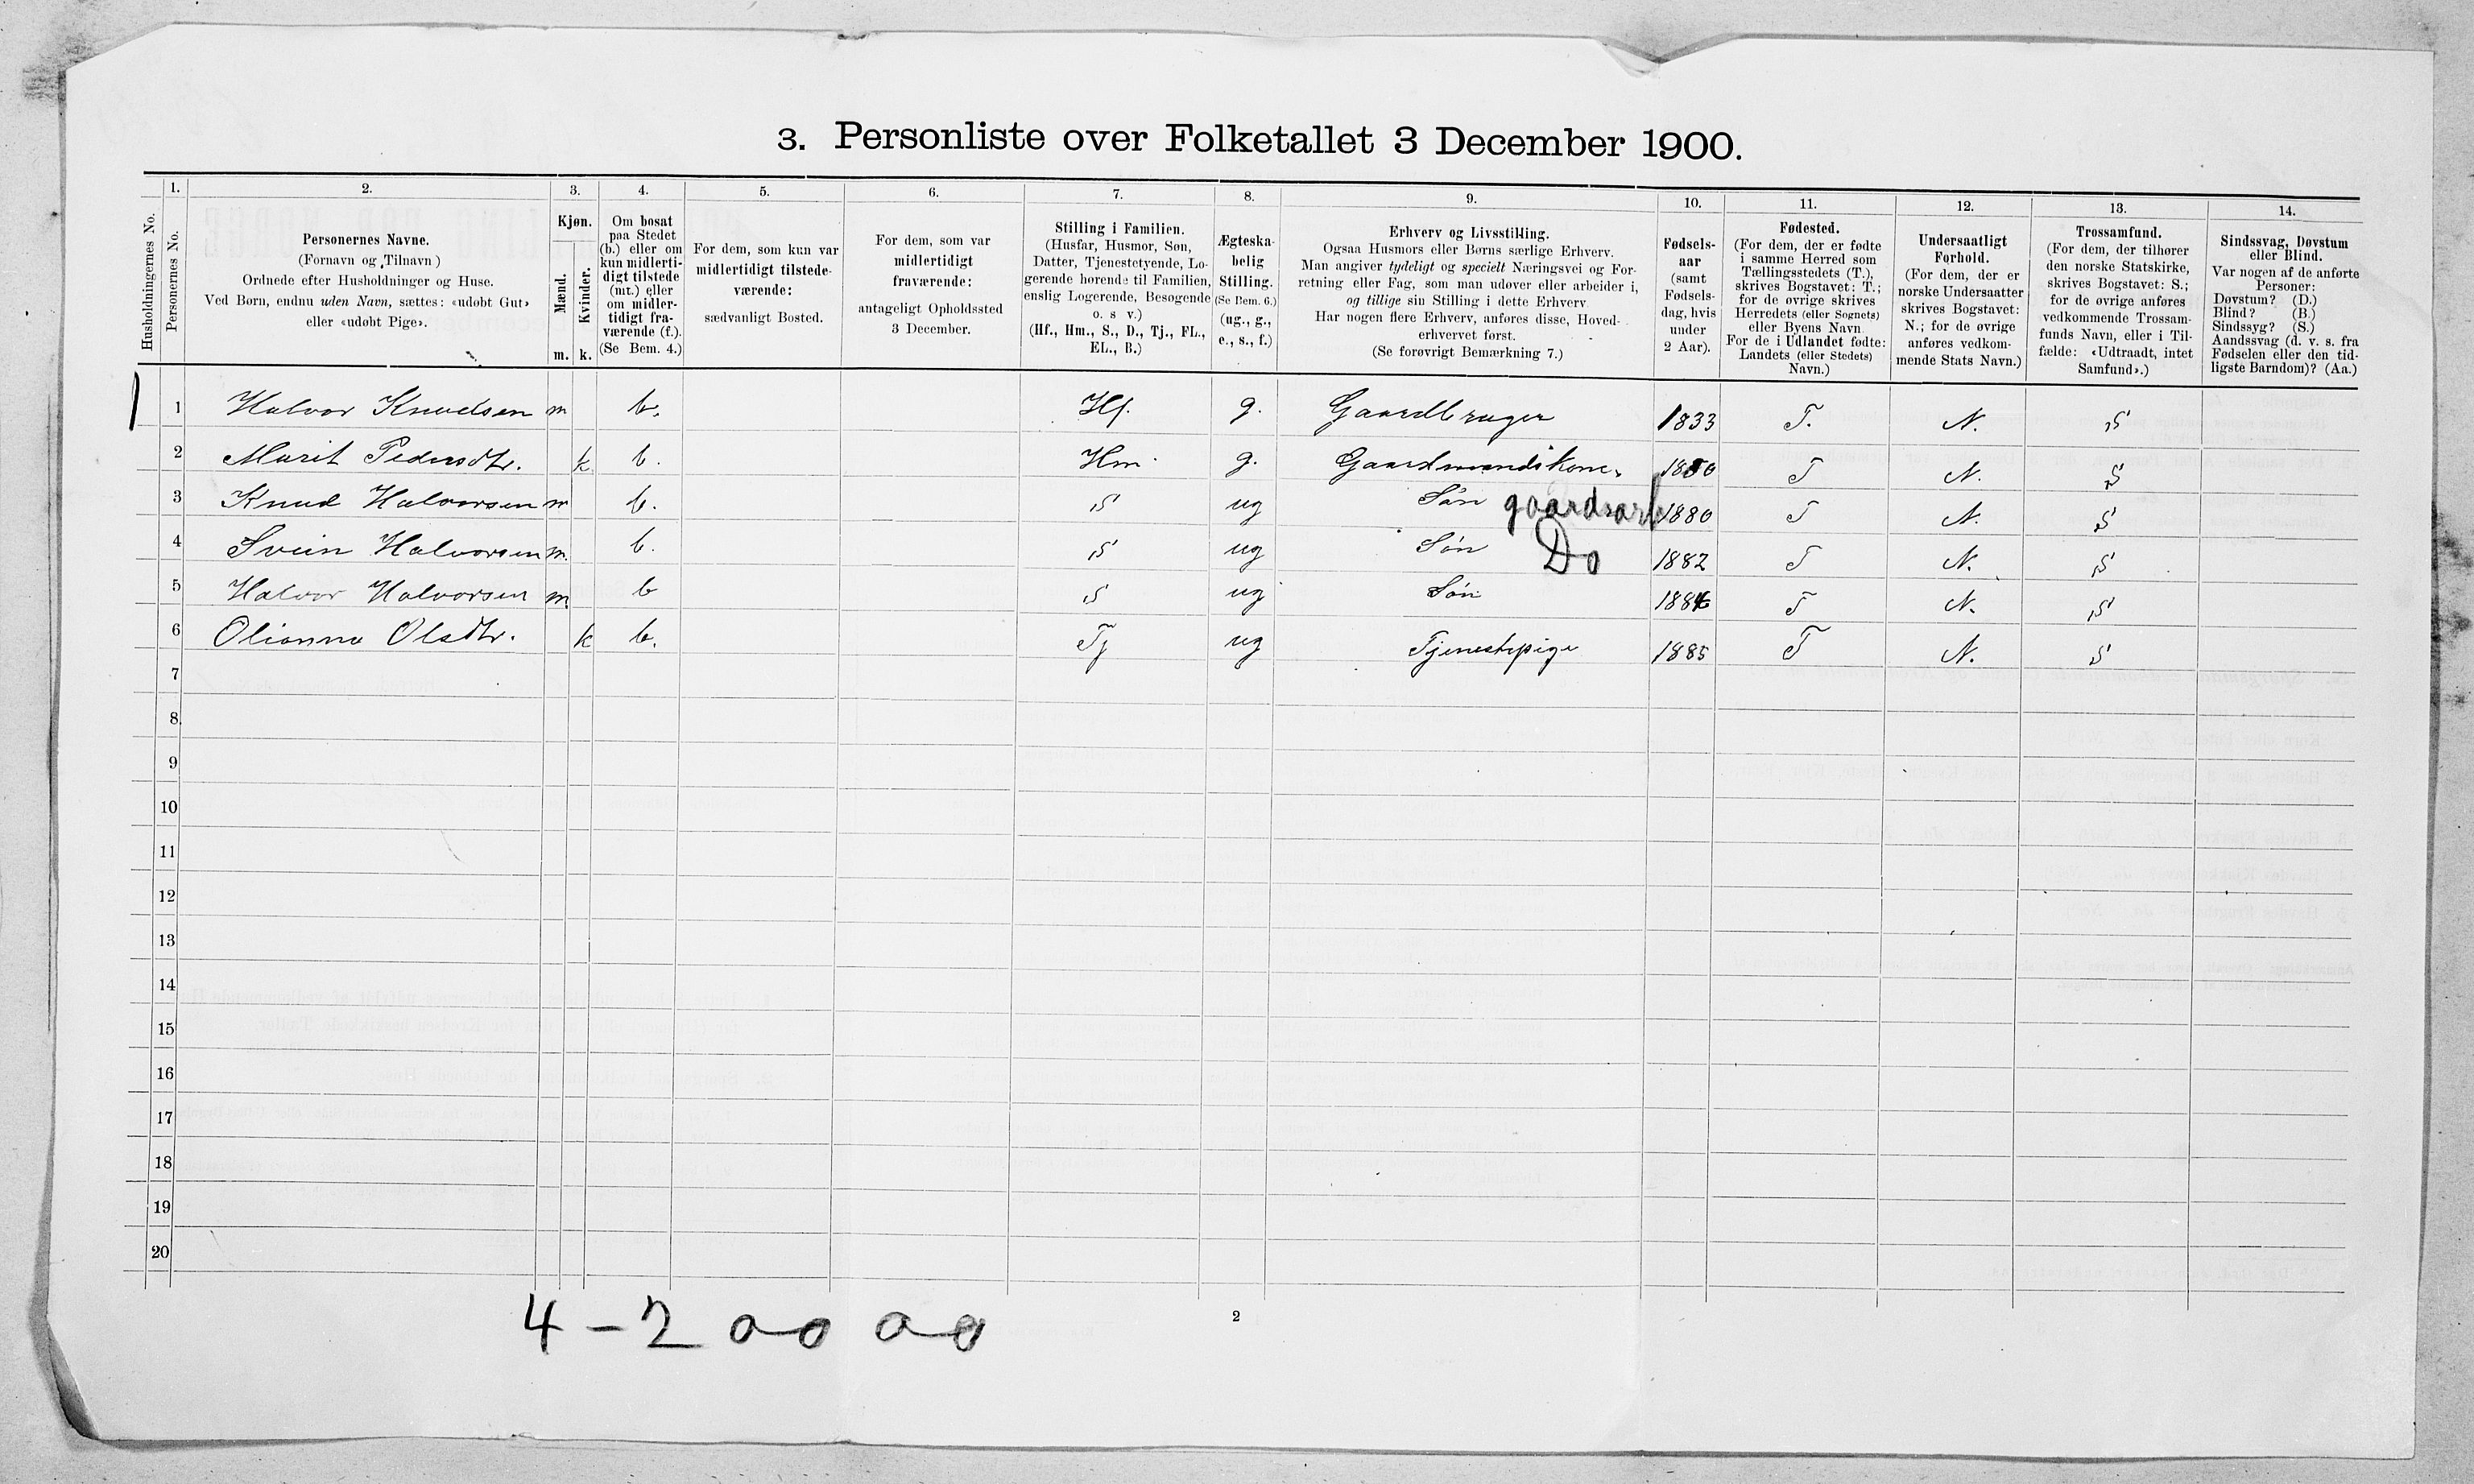 3. Personliste over Folketallet 3 December 1900.
1. 2. 3. 4. 5. 6. 7. 8. 9. 10. 11. 12. 13. 14.
Husholdningernes No.
Personernes No.
Personernes Navne.
(Fornavn og Tilnavn)
Ordnede efter Husholdninger og Huse.
Ved Børn, endnu uden Navn, sættes: «udøbt Gut»
eller «udøbt Pige».
Kjøn.
Mænd.
Kvinder.
m. k.
Om bosat
paa Stedet
(b.) eller om
kun midlerti-
digt tilstede
(mt.) eller
om midler-
tidigt fra-
værende (f.).
(Se Bem. 4.)
For dem, som kun var
midlertidigt tilstede-
værende:
sædvanligt Bosted.
For dem, som var
midlertidigt
fraværende:
antageligt Opholdssted
3 December.
Stilling i Familien.
(Husfar, Husmor, Søn,
Datter, Tjenestetyende, Lo-
gerende hørende til Familien,
enslig Logerende, Besøgende
o. s v.)
(Hf., Hm., S., D., Tj., FL.,
EL., B.)
Ægteska-
belig
Stilling.
(Se Bem. 6.)
(ug., g.,
e., s., f.)
Erhverv og Livsstilling.
Ogsaa Husmors eller Børns særlige Erhverv.
Man angiver tydeligt og specielt Næringsvei og For-
retning eller Fag, som man udøver eller arbeider i,
og tillige sin Stilling i dette Erhverv.
Har nogen flere Erhverv, anføres disse, Hoved-
erhvervet først.
(Se forøvrigt Bemærkning 7.)
Fødsels-
aar
(samt
Fødsels-
dag, hvis
under
2 Aar).
Fødested.
(For dem, der er fødte
i samme Herred som
Tællingsstedets (T.),
skrives Bogstavet: T.;
for de øvrige skrives
Herredets (eller Sognets)
eller Byens Navn.
For de i Udlandet fødte:
Landets (eller Stedets)
Navn.)
Undersaatligt
Forhold.
(For dem, der er
norske Undersaatter
skrives Bogstavet:
N.; for de øvrige
anføres vedkom-
mende Stats Navn.)
Trossamfund.
(For dem, der tilhører
den norske Statskirke,
skrives Bogstavet: S.;
for de øvrige anføres
vedkommende Trossam-
funds Navn, eller i Til-
fælde: «Udtraadt, intet
Samfund».)
Sindssvag, Døvstum
eller Blind.
Var nogen af de anførte
Personer:
Døvstum? (D.)
Blind? (B.)
Sindssyg? (S.)
Aandssvag (d. v. s. fra
Fødselen eller den tid-
ligste Barndom)? (Aa.)
1 1 Halvor Knudsen m b. Hf. g. Gaardbruger 1833 T. N. S
2 Marit Pedersdtr. k b. Hm. g. Gaardmandskone. 1850 T N. S
3 Knud Halvorsen m b. S ug Søn gaardsarb 1880 T N. S
4 Svein Halvorsen m. b. S ug Søn Do 1882 T N. S
5 Halvor Halvorsen m. b S ug Søn 1884 T N. S
6 Olianna Olsdtr. k b. Tj ug Tjenestepige 1885 T N. S
7
8
9
10
11
12
13
14
15
16
17
18
19
20
4 - 2 0-0 0-0
2